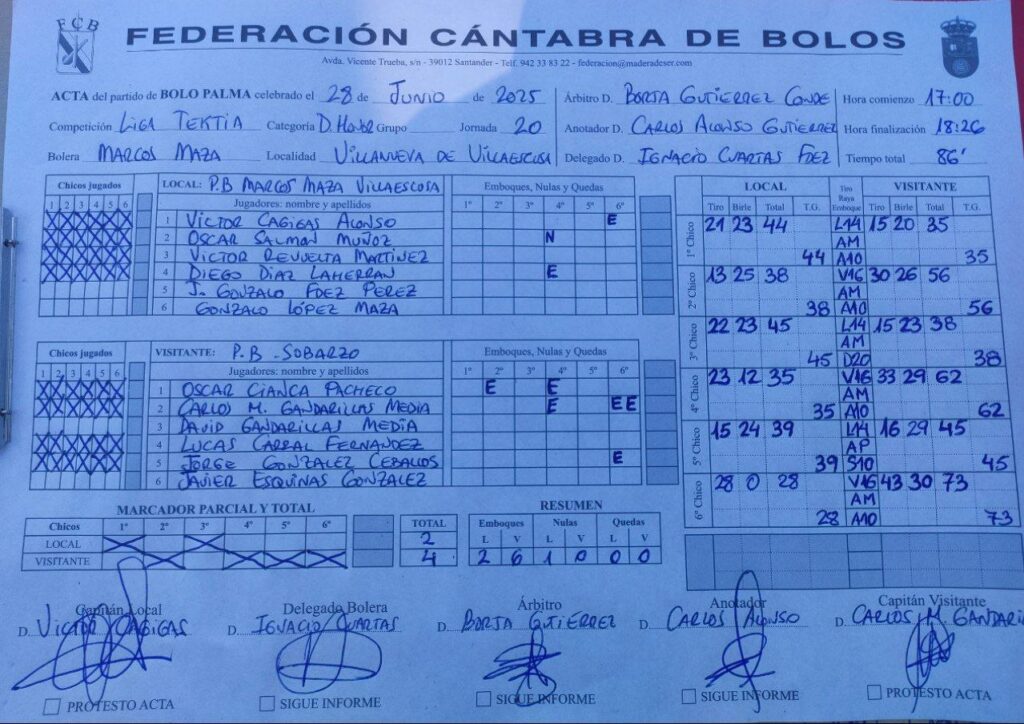 FCB
FEDERACIÓN CÁNTABRA DE BOLOS
Avda. Vicente Trueba, s/n - 39012 Santander - Telf. 942 33 83 22 - federacion@maderadeser.com
ACTA del partido de BOLO PALMA celebrado el 28 de JUNIO de 2025 Árbitro D. BORJA GUTIERREZ CONDE Hora comienzo 17:00
Competición LIGA TEKTIA Categoría D. HONOR Grupo Jornada 20 Anotador D. CARLOS ALONSO GUTIERREZ Hora finalización 18:26
Bolera MARCOS MAZA Localidad VILLANUEVA DE VILLAESCUSA Delegado D. IGNACIO CUARTAS FDEZ Tiempo total 86'
Chicos jugados LOCAL: P.B MARCOS MAZA VILLAESCUSA Emboques, Nulas y Quedas
1 2 3 4 5 6 Jugadores: nombre y apellidos 1º 2º 3º 4º 5º 6º
1 VICTOR CAGIGAS ALONSO E
2 OSCAR SALMON MUÑOZ N
3 VICTOR REVUELTA MARTINEZ
4 DIEGO DIAZ LAHERRAN E
5 J. GONZALO FDEZ PEREZ
6 GONZALO LÓPEZ MAZA
Chicos jugados VISITANTE: P.B. SOBARZO Emboques, Nulas y Quedas
1 2 3 4 5 6 Jugadores: nombre y apellidos 1º 2º 3º 4º 5º 6º
1 OSCAR CIANCA PACHECO E E
2 CARLOS M. GANDARILLAS MEDIA E EE
3 DAVID GANDARILLAS MEDIA
4 LUCAS CARRAL FERNANDEZ
5 JORGE GONZALEZ CEBALLOS E
6 JAVIER ESQUINAS GONZALEZ
LOCAL Tiro Raya Emboque VISITANTE
Tiro Birle Total T.G. Tiro Birle Total T.G.
1º Chico 21 23 44 L14 15 20 35
AM
44 A10 35
2º Chico 13 25 38 V16 30 26 56
AM
38 A10 56
3º Chico 22 23 45 L14 15 23 38
AM
45 D20 38
4º Chico 23 12 35 V16 33 29 62
AM
35 A10 62
5º Chico 15 24 39 L14 16 29 45
AP
39 S10 45
6º Chico 28 0 28 V16 43 30 73
AM
28 A10 73
MARCADOR PARCIAL Y TOTAL
Chicos 1º 2º 3º 4º 5º 6º TOTAL
LOCAL 2
VISITANTE 4
RESUMEN
Emboques Nulas Quedas
L V L V L V
2 6 1 0 0 0
Capitán Local Delegado Bolera Árbitro Anotador Capitán Visitante
D. VICTOR CAGIGAS D. IGNACIO CUARTAS D. BORJA GUTIERREZ D. CARLOS ALONSO D. CARLOS M. GANDARI
PROTESTO ACTA SIGUE INFORME SIGUE INFORME SIGUE INFORME PROTESTO ACTA